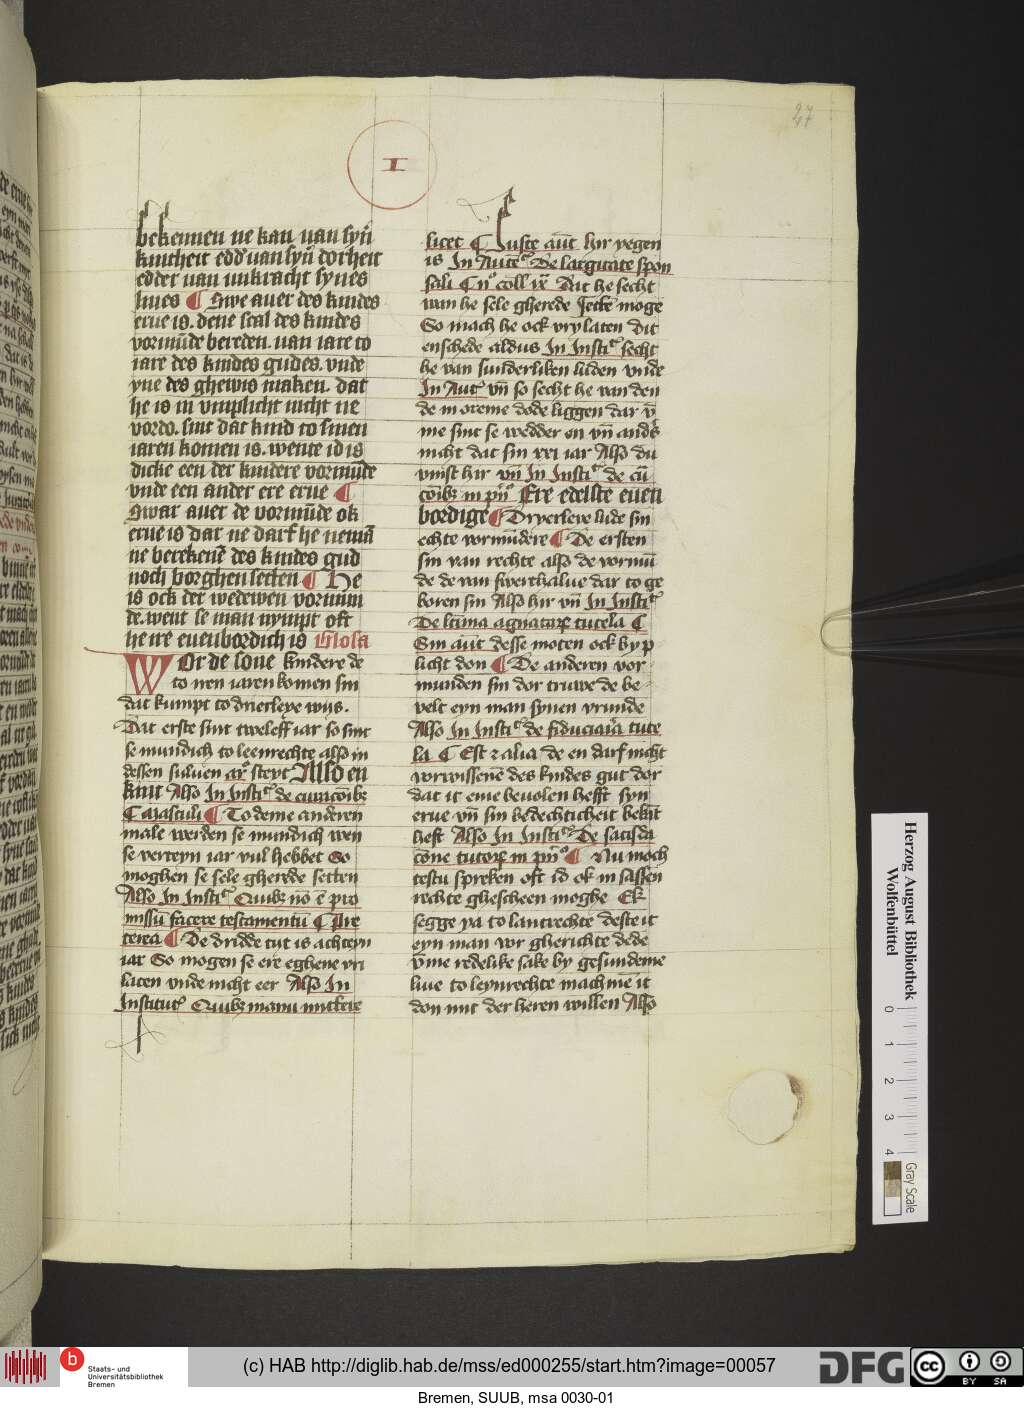 27
I
bekennen ne kan van synr
kintheit edder van syner dorheit
edder van unkracht synes
liues ¶ Swe auer des kindes
erue is. deme scal des kindes
vormunde bereken. van iare to
iare des kindes gudes. vnde
yne des ghewis maken. dat
he is in vnplicht nicht ne
vordo. sint dat kind to sinen
iaren komen is. wente id is
dicke een der kindere vormunde
vnde een ander ere erue ¶
Swar auer de vormunde ok
erue is dar ne darf he nemā
ne berekenē des kindes gud
noch borghen setten ¶ He
is ock der wedewen vormun
de. went se man nympt oft
he ire euenbordich is Glosa
Wor de soue kindere de
to iren iaren komen sin
dat kumpt to drierleye wijs.
Dat erste sint tweleff iar so sint
se mundich to leenrechte also in
dessen suluen ar° steyt Also en
kint Also In Insti° de curacōibꝫ
¶ Masculi ¶ To deme anderen
male werden se mundich wen
se verteyn iar vul hebbet So
moghen se sele gherede setten
Also In Insti° Quibꝫ nō ē pro
missū facere testamentū ¶ Pre
terea ¶ De dridde tiit is achteyn
iar So mogen se ere eghene vri
laten vnde nicht eer Also In
Institut° Quibꝫ manu mittere
licet ¶ Iuste aūt hir yegen
is In Aute° De largitate spon
sali ¶ n° coll ix Dat he secht
wan he sele gherede setten moge
So mach he ock vry laten dit
enschede aldus In Insti° secht
he van sunderliken luden vnde
In Aut° vn so secht he van den
de in oreme dode liggen dar v̄
me sint se wedder en vn anders
nicht dat sin xxi iar Also du
vinst hir vn In Insti° de cu
cōibꝫ in prin° Ere edelste euen
bordige ¶ Dryerleye lude sin
echte vormundere ¶ De ersten
sin van rechte also de vormū
de de van swerthalue dar to ge
boren sin Also hir vn In Insti°
De legitima agnatorum tutela ¶
Sin aūt desse moten ock by p
licht don ¶ De anderen vor
munden sin dor truwe de be
velt eyn man synen vrunde
Also In Insti° de fiduciaria tute
la ¶ Est et alia de en darf nicht
vorwissenē des kindes gut dor
dat it eme beuolen hefft syn
erue vn sin bedechticheit bekant
heft Also In Insti° De satisda
cōne tutorum in prin° ¶ Nu moch
testu spreken oft id ok in sassen
rechte gheschen moghe Ek
segge ya to lantrechte deste it
eyn man vor gherichte dede
vme redelike sake by gesundeme
liue to leynrechte mach me it
don mit der heren willen Also
Herzog August Bibliothek
Wolfenbüttel
0 1 2 3 4
Gray Scale
b Staats- und
Universitätsbibliothek
Bremen
(c) HAB http://diglib.hab.de/mss/ed000255/start.htm?image=00057
DFG
cc BY SA
Bremen, SUUB, msa 0030-01